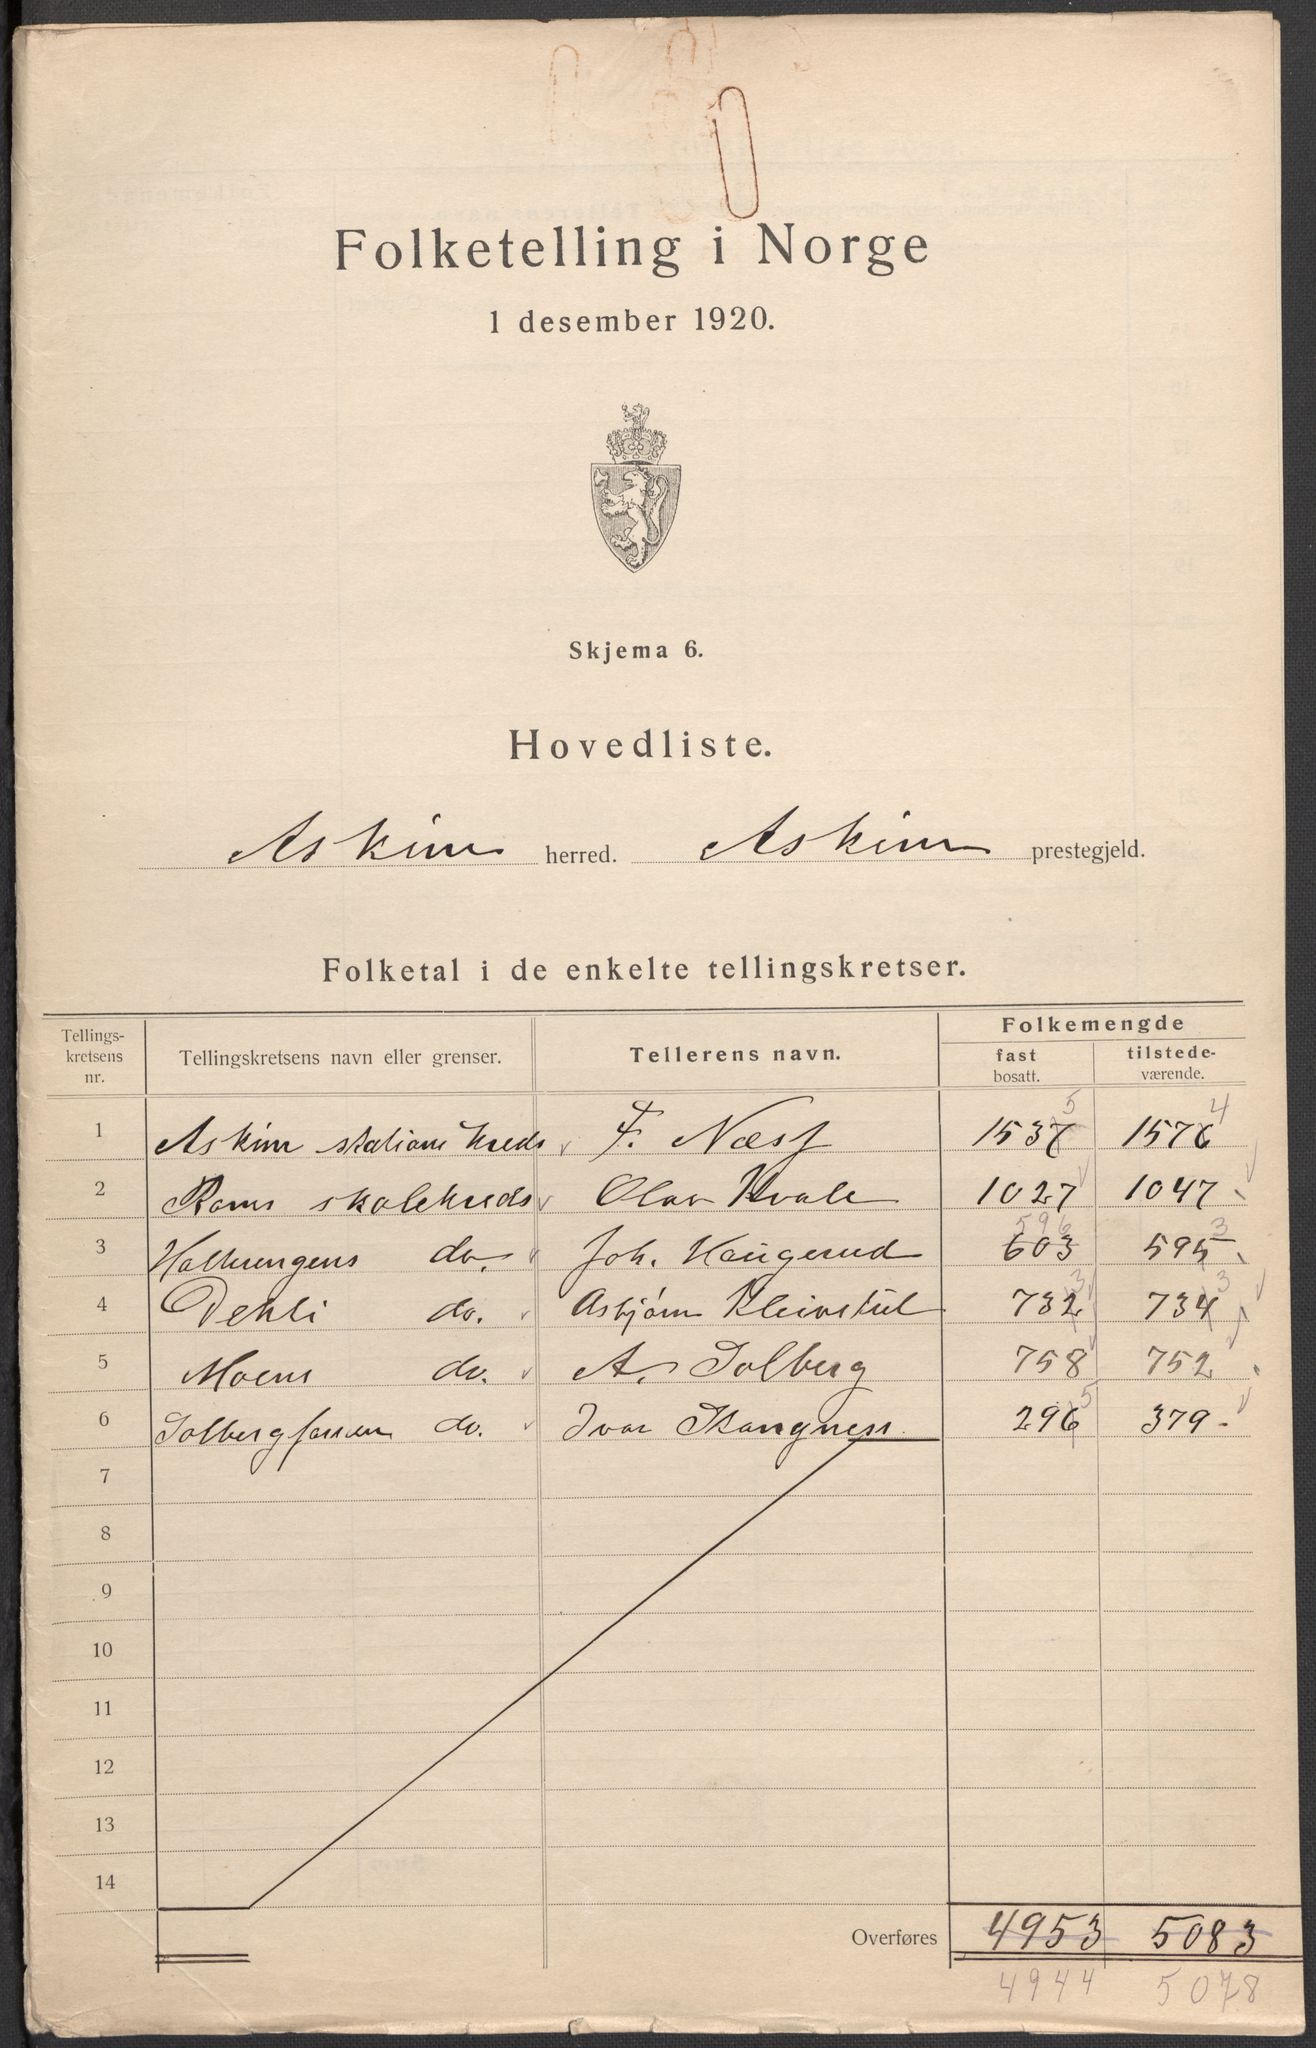 Folketelling i Norge
1 desember 1920.
Skjema 6.
Hovedliste.
Askim herred. Askim prestegjeld.
Folketal i de enkelte tellingskretser.
Tellings-kretsens nr. Tellingskretsens navn eller grenser. Tellerens navn. Folkemengde
fast bosatt. tilstede-værende.
5 4
1 Askim stations kreds F. Næss 1537 1576
2 Roms skolekreds Olav Kvale 1027 1047
596 3
3 do. Joh. Haugerud 603 595
3 3
4 Dehli do. Asbjørn Kleivstul 732 734
5 Moens do. A. Solberg 758 752
5
6 Solbergfossen do. Ivar 296 379
7
8
9
10
11
12
13
14
Overføres 4953 5083
4944 5078